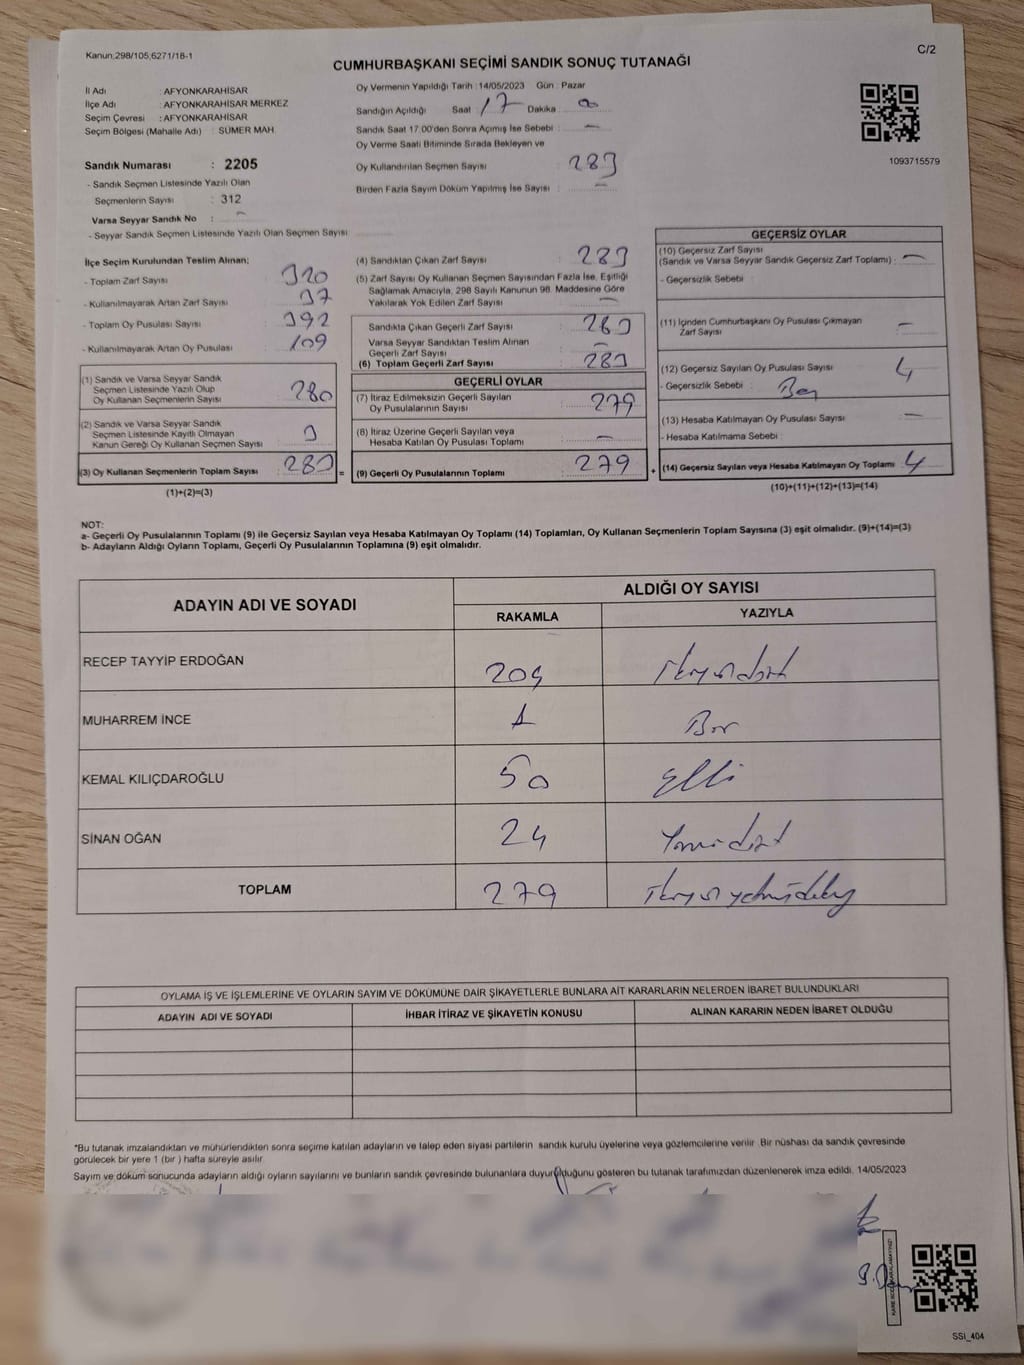 Kanun;298/105,6271/18-1
C/2
CUMHURBAŞKANI SEÇİMİ SANDIK SONUÇ TUTANAĞI
İl Adı : AFYONKARAHİSAR
İlçe Adı : AFYONKARAHİSAR MERKEZ
Seçim Çevresi : AFYONKARAHİSAR
Seçim Bölgesi (Mahalle Adı) : SÜMER MAH.
Sandık Numarası : 2205
- Sandık Seçmen Listesinde Yazılı Olan
Seçmenlerin Sayısı : 312
Varsa Seyyar Sandık No : -
- Seyyar Sandık Seçmen Listesinde Yazılı Olan Seçmen Sayısı
Oy Vermenin Yapıldığı Tarih :14/05/2023 Gün : Pazar
Sandığın Açıldığı Saat 17 Dakika 0
Sandık Saat 17.00'den Sonra Açımış İse Sebebi : -
Oy Verme Saati Bitiminde Sırada Bekleyen ve
Oy Kullandırılan Seçmen Sayısı 283
Birden Fazla Sayım Döküm Yapılmış İse Sayısı : -
1093715579
İlçe Seçim Kurulundan Teslim Alınan;
- Toplam Zarf Sayısı : 320
- Kullanılmayarak Artan Zarf Sayısı : 37
- Toplam Oy Pusulası Sayısı : 392
- Kullanılmayarak Artan Oy Pusulası : 109
(1) Sandık ve Varsa Seyyar Sandık
Seçmen Listesinde Yazılı Olup
Oy Kullanan Seçmenlerin Sayısı 280
(2) Sandık ve Varsa Seyyar Sandık
Seçmen Listesinde Kayıtlı Olmayan
Kanun Gereği Oy Kullanan Seçmen Sayısı 3
(3) Oy Kullanan Seçmenlerin Toplam Sayısı 283 =
(1)+(2)=(3)
(4) Sandıktan Çıkan Zarf Sayısı : 283
(5) Zarf Sayısı Oy Kullanan Seçmen Sayısından Fazla İse, Eşitliği
Sağlamak Amacıyla, 298 Sayılı Kanunun 98. Maddesine Göre
Yakılarak Yok Edilen Zarf Sayısı : -
Sandıkta Çıkan Geçerli Zarf Sayısı : 283
Varsa Seyyar Sandıktan Teslim Alınan
Geçerli Zarf Sayısı : -
(6) Toplam Geçerli Zarf Sayısı : 283
GEÇERLİ OYLAR
(7) İtiraz Edilmeksizin Geçerli Sayılan
Oy Pusulalarının Sayısı : 279
(8) İtiraz Üzerine Geçerli Sayılan veya
Hesaba Katılan Oy Pusulası Toplamı : -
(9) Geçerli Oy Pusulalarının Toplamı : 279 +
GEÇERSİZ OYLAR
(10) Geçersiz Zarf Sayısı
(Sandık ve Varsa Seyyar Sandık Geçersiz Zarf Toplamı) : -
- Geçersizlik Sebebi :
(11) İçinden Cumhurbaşkanı Oy Pusulası Çıkmayan
Zarf Sayısı : -
(12) Geçersiz Sayılan Oy Pusulası Sayısı : 4
- Geçersizlik Sebebi :
(13) Hesaba Katılmayan Oy Pusulası Sayısı : -
- Hesaba Katılmama Sebebi :
(14) Geçersiz Sayılan veya Hesaba Katılmayan Oy Toplamı : 4
(10)+(11)+(12)+(13)=(14)
NOT:
a- Geçerli Oy Pusulalarının Toplamı (9) ile Geçersiz Sayılan veya Hesaba Katılmayan Oy Toplamı (14) Toplamları, Oy Kullanan Seçmenlerin Toplam Sayısına (3) eşit olmalıdır. (9)+(14)=(3)
b- Adayların Aldığı Oyların Toplamı, Geçerli Oy Pusulalarının Toplamına (9) eşit olmalıdır.
ADAYIN ADI VE SOYADI
ALDIĞI OY SAYISI
RAKAMLA YAZIYLA
RECEP TAYYİP ERDOĞAN 204 ikiyüzdört
MUHARREM İNCE 1 Bir
KEMAL KILIÇDAROĞLU 50 elli
SİNAN OĞAN 24 Yirmidört
TOPLAM 279 ikiyüzyetmişdokuz
OYLAMA İŞ VE İŞLEMLERİNE VE OYLARIN SAYIM VE DÖKÜMÜNE DAİR ŞİKAYETLERLE BUNLARA AİT KARARLARIN NELERDEN İBARET BULUNDUKLARI
ADAYIN ADI VE SOYADI İHBAR İTİRAZ VE ŞİKAYETİN KONUSU ALINAN KARARIN NEDEN İBARET OLDUĞU
*Bu tutanak imzalandıktan ve mühürlendikten sonra seçime katılan adayların ve talep eden siyasi partilerin sandık kurulu üyelerine veya gözlemcilerine verilir. Bir nüshası da sandık çevresinde
görülecek bir yere 1 (bir ) hafta süreyle asılır.
Sayım ve döküm sonucunda adayların aldığı oyların sayılarını ve bunların sandık çevresinde bulunanlara duyurulduğunu gösteren bu tutanak tarafımızdan düzenlenerek imza edildi. 14/05/2023
SSI_404